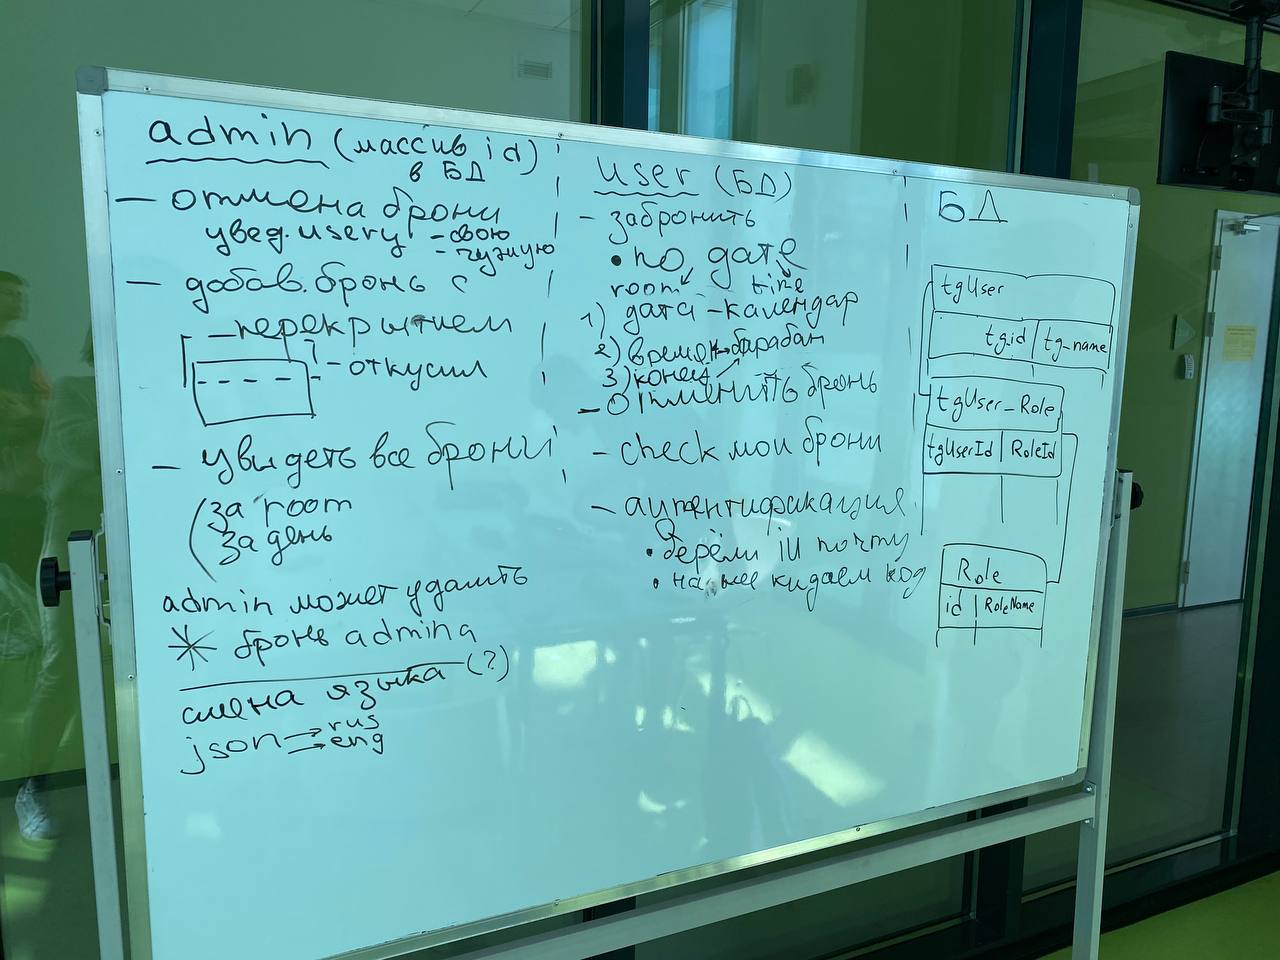 admin (массив id)
в БД
— отмена брони
увед. userу - свою
- чужую
— добав. бронь с
— перекрытием
- откусил
— увидеть все брони
за room
за день
admin может удалить
* бронь adminа
смена языка (?)
json → rus
→ eng
user (БД)
- забронить
• по дате
room time
1) дата - календар
2) время → барабан
3) конец
- отменить бронь
- check мои брони
- аутентификация
• берём iu почту
• на нее кидаем код
БД
tgUser
tg.id | tg_name
tgUser_Role
tgUserId | RoleId
Role
id | RoleName